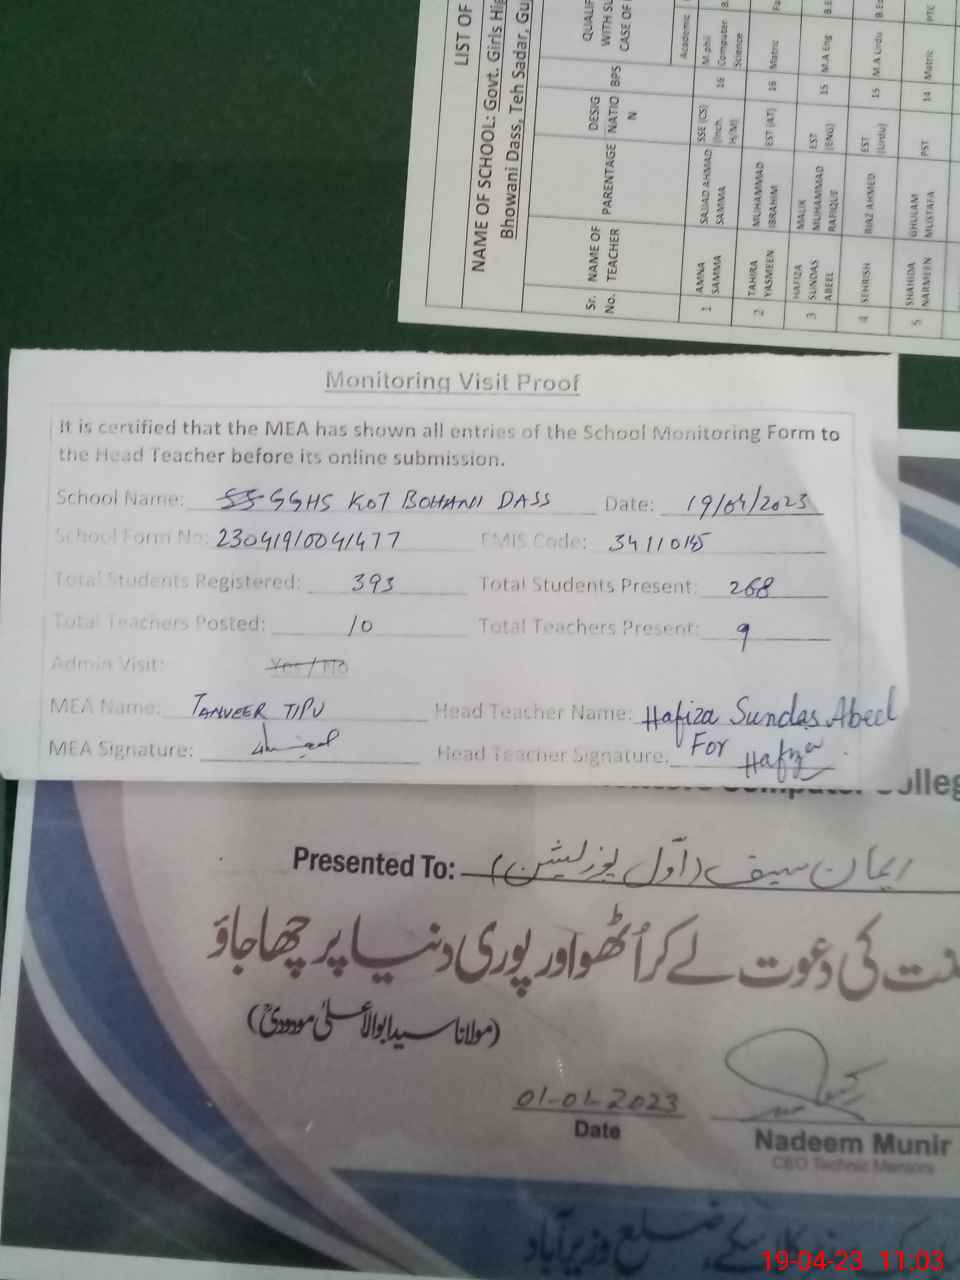 LIST OF
NAME OF SCHOOL: Govt. Girls
Bhowani Dass, Teh Sadar,
Sr. No. NAME OF TEACHER PARENTAGE DESIG NATIO N BPS
CASE OF
Academic
1 AMNA SAMMA SAJJAD AHMAD SAMMA SSE (CS) (Inch. H/M) 16 M.phil Computer Science
2 TAHIRA YASMEEN MUHAMMAD IBRAHIM EST (AT) 16 Matric
3 HAFIZA SUNDAS ABEEL MALIK MUHAMMAD RAFIQUE EST (ENG) 15 M.A Eng
4 SEHRISH RIAZ AHMED EST (Urdu) 15 M.A Urdu
5 SHAHIDA NARMEEN GHULAM MUSTAFA PST 14 Matric PTC
Monitoring Visit Proof
It is certified that the MEA has shown all entries of the School Monitoring Form to
the Head Teacher before its online submission.
School Name: GGHS KOT BOHANI DASS Date: 19/04/2023
School Form No: 230419/0041477 EMIS Code: 34110145
Total Students Registered: 393 Total Students Present: 268
Total Teachers Posted: 10 Total Teachers Present: 9
Admin Visit: Yes / No
MEA Name: TANVEER TIPU Head Teacher Name: Hafiza Sundas Abeel
MEA Signature: Head Teacher Signature. For Hafiza
Computer
Presented To: ایمان سیف (اول پوزیشن)
کی دعوت لے کر اُٹھو اور پوری دنیا پر چھا جاؤ
(مولانا سید ابوالاعلیٰ مودودیؒ)
01-01-2023
Date
Nadeem Munir
CEO Technic Mentors
ضلع وزیرآباد
19-04-23 11:03